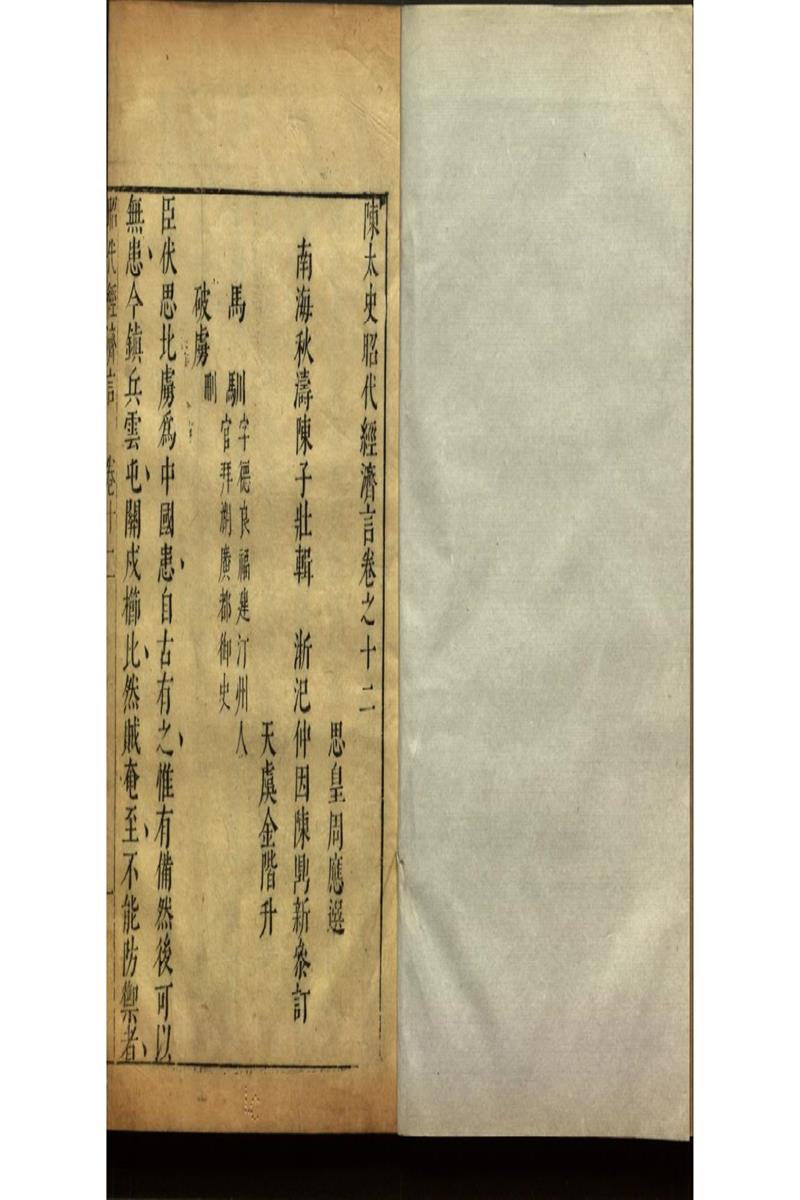 陳太史昭代經濟言卷之十二
思皇周應選
南海秋濤陳子壯輯　浙汜仲因陳鼎新叅訂
天虞金階升
馬　馴字德良福建汀州人
官拜湖廣都御史
破虜刪
臣伏思北虜爲中國患自古有之惟有備然後可以
無患今鎮兵雲屯關戍櫛比然賊奄至不能防禦者
昭代經濟言　卷十二